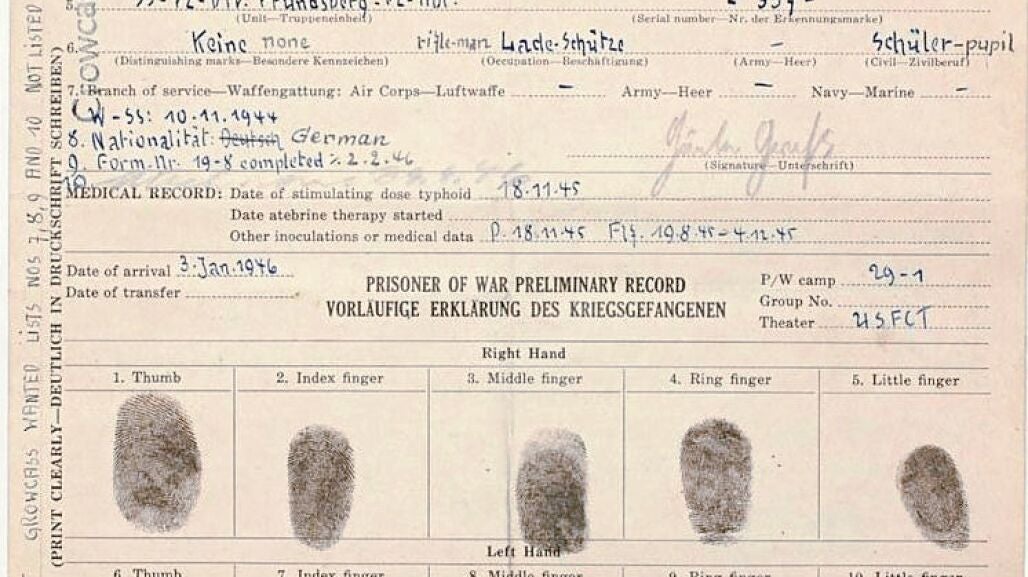 5. SS-Pz-Div. Frundsberg
(Unit—Truppeneinheit)
(Serial number—Nr. der Erkennungsmarke)
6. Keine none rifle-man Lade-Schütze – Schüler-pupil
(Distinguishing marks—Besondere Kennzeichen) (Occupation—Beschäftigung) (Army—Heer) (Civil—Zivilberuf)
7. Branch of service—Waffengattung: Air Corps—Luftwaffe – Army—Heer – Navy—Marine –
W-SS: 10.11.1944
8. Nationalität: Deutsch German
9. Form.-Nr. 19-8 completed 2.2.46
(Signature—Unterschrift)
10.
MEDICAL RECORD: Date of stimulating dose typhoid 18.11.45
Date atebrine therapy started
Other inoculations or medical data P. 18.11.45 Flf. 19.8.45-4.12.45
Date of arrival 3. Jan. 1946
Date of transfer
PRISONER OF WAR PRELIMINARY RECORD
VORLÄUFIGE ERKLÄRUNG DES KRIEGSGEFANGENEN
P/W camp 29-1
Group No.
Theater USFCT
Right Hand
1. Thumb 2. Index finger 3. Middle finger 4. Ring finger 5. Little finger
Left Hand
6. Thumb 7. Index finger 8. Middle finger 9. Ring finger 10. Little finger
CROWCASS WANTED LISTS NOS 7,8,9 AND 10 NOT LISTED
(PRINT CLEARLY—DEUTLICH IN DRUCKSCHRIFT SCHREIBEN)